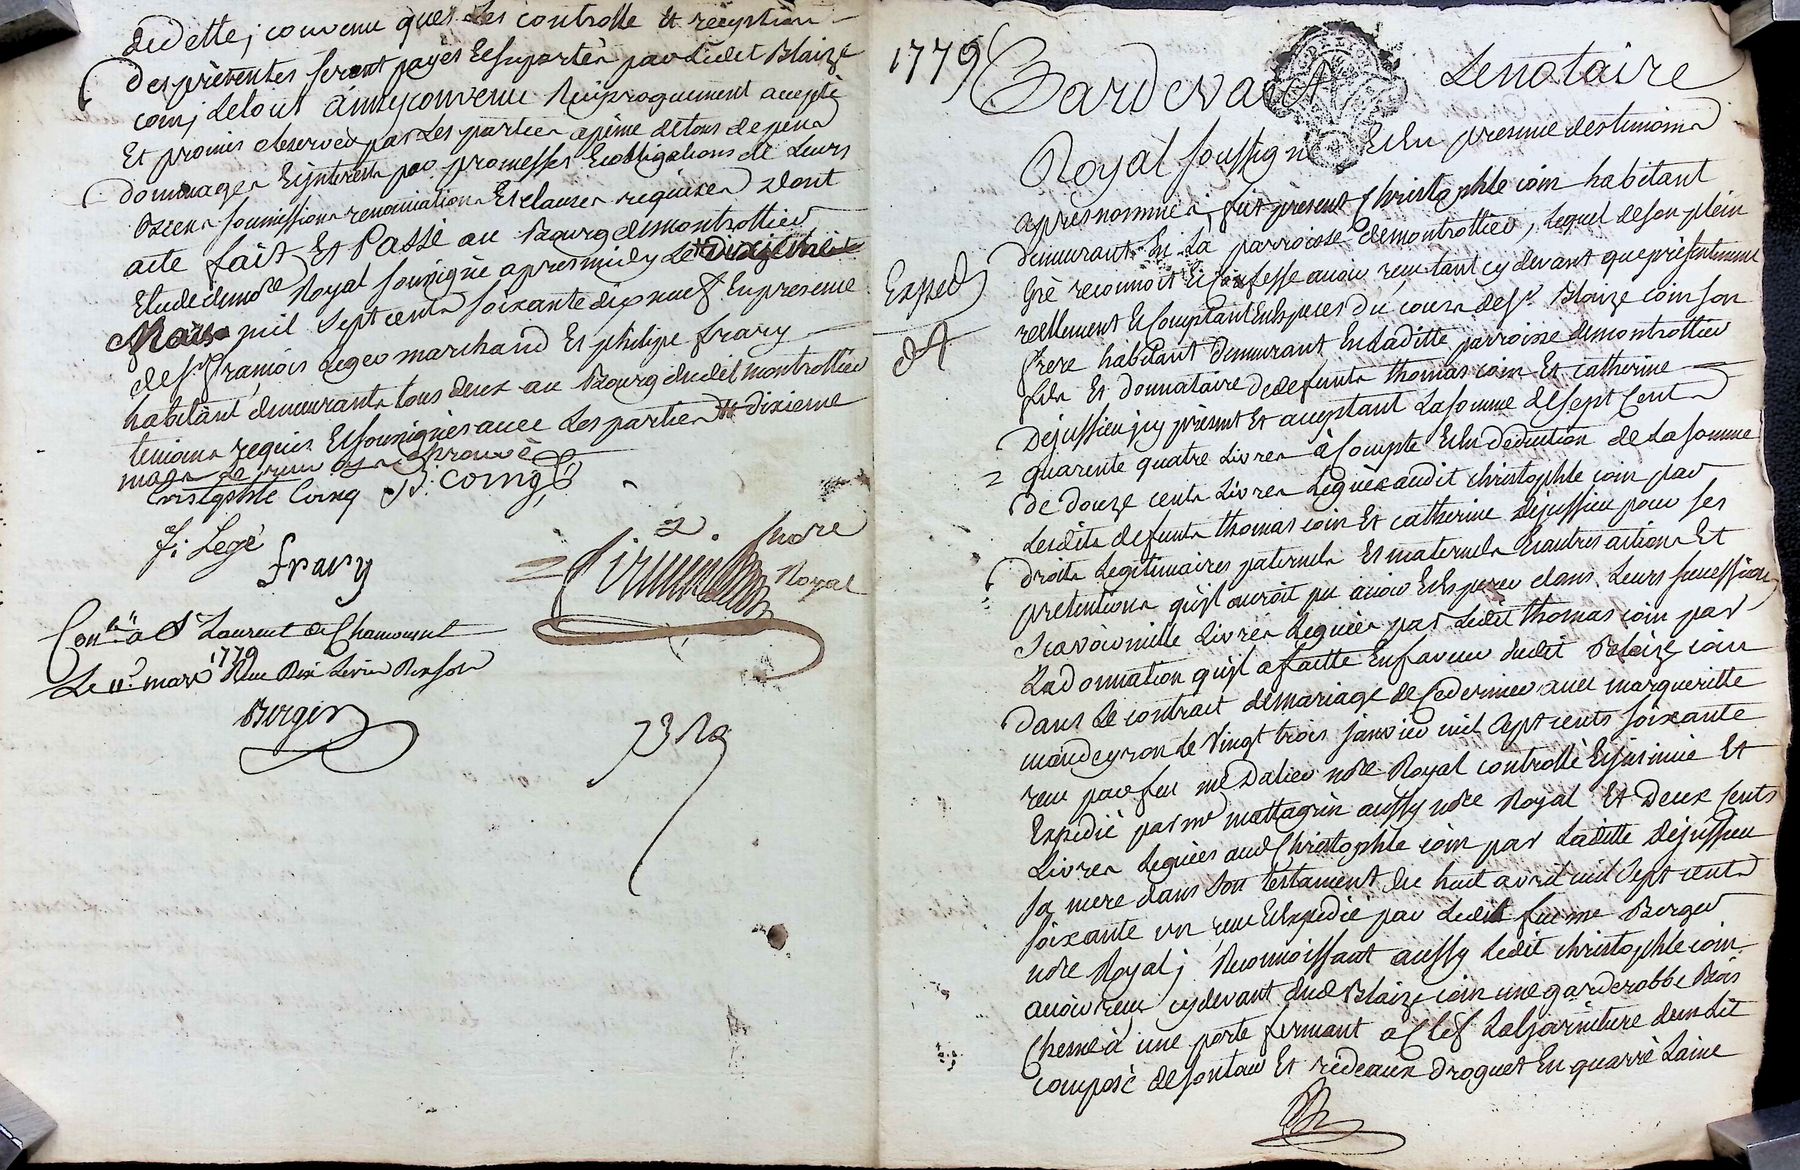 dud dette, convenu que les controlle Et reception
des presentes seront payés Et suportés par Ledit Blaize
coin, Le tout ainsy convenu Reciproquement accepté
Et promis observer par Les parties a peine de tous depens
dommages Et interests par promesses Et obligations de Leurs
Biens soumissions renonciations Et clauses requises dont
acte fait Et Passé au Bourg de montrottier
Etude du nore Royal soussigné apres midy Le dixieme
Mars mil sept cents soixante dix neuf En presence
de sr françois Leger marchand Et philipe frary
habitant demeurants tous deux au Bourg dudit montrottier
temoins requis Et soussignés avec Les parties # dixieme
mars Le renvoy approuvé
Cristophle Coing B: coing
f: Legé
frary
nore
Royal
Conlé a St Laurent de Chamousset
Le 11e mars 1779 Reçu Dix Livres Dix sols
Berger
1779
Pardevant Le notaire
Royal soussigné Et En presence des temoins
apres nommés, fut présent Christophle coin habitant
demeurant En La parroisse de montrottier, Lequel de son plein
Gré reconnoit Et Confesse avoir reçu tant cy devant que présentement
réellement Et comptant En Especes du cours de sr Blaize coin son
frere habitant demeurant En Laditte parroisse de montrottier
fils Et donnataire de defunts thomas coin Et catherine
Dejussieu icy présent Et acceptant La somme de sept Cents
quarente quatre Livres à Compte Et En déduction de La somme
de douze cents Livres Leguées audit christophle coin par
Lesdits defunts thomas coin Et catherine Dejussieu pour ses
droits Legitimaires paternels Et maternels Et autres actions Et
pretentions qu'il auroit pu avoir Et Esperer dans Leurs successions,
Scavoir mille Livres Leguées par Ledit thomas coin par
La donnation qu'il a faitte En faveur dudit Blaize coin
Exped
dans Le contract de mariage de Ce dernier avec margueritte
maudeyron Le Vingt trois janvier mil sept cents soixante
reçu par feu me Dalier nore Royal controllé Et insinué Et
Expedié par me mattagrin aussy nore Royal Et Deux Cents
Livres Leguées aud Christophle coin par Laditte dejussieu
sa mere dans son testament du huit avril mil sept cents
soixante un reçu Et Expedié par Ledit feu me Berger
nore Royal; Reconnoissant aussy Ledit christophle coin
avoir reçu cy devant dud Blaize coin une garderobbe Bois
Chesne à une porte fermant a Clef La garniture d'un Lit
composé de son tour Et rideaux droguet En quarré Laine